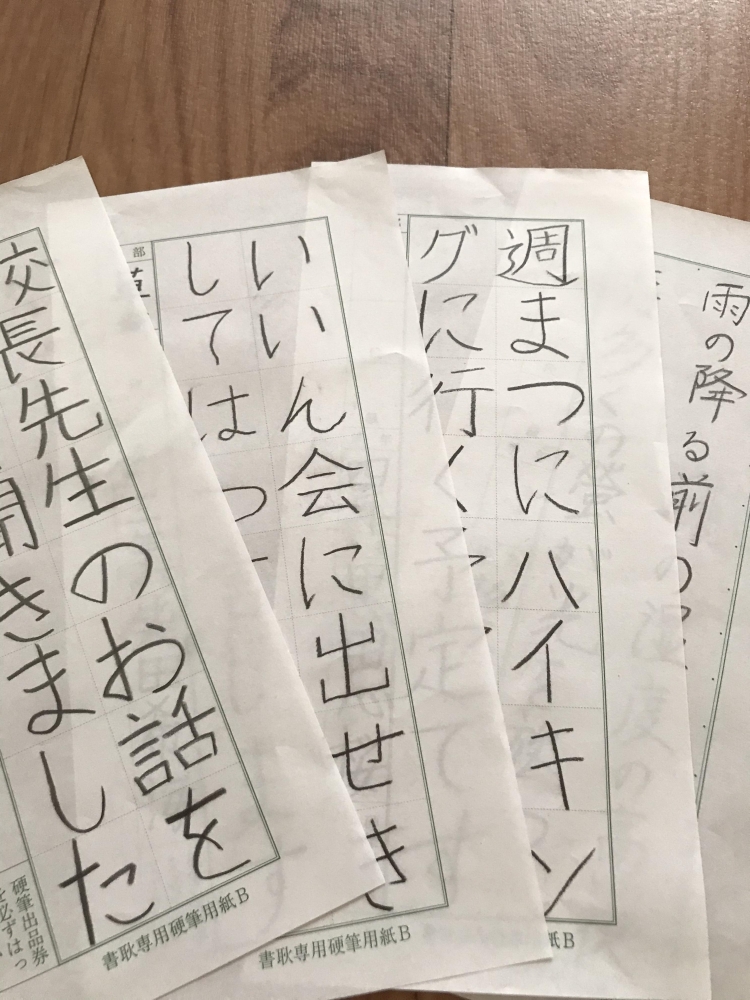 週まつにハイキン
グに行く予定です
いいん会に出せき
しては
校長先生のお話を
聞きました
雨の降る前の
書耿専用硬筆用紙B
書耿専用硬筆用紙B
紙B
硬筆出品券
を必ずはっ
部